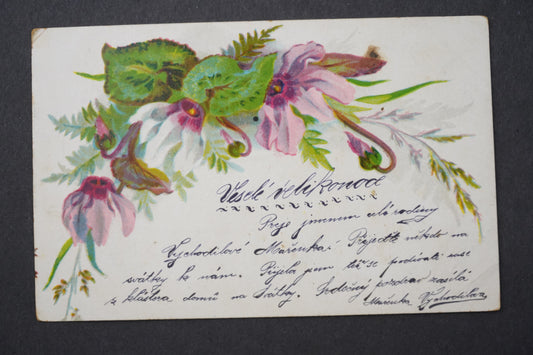 Veselé velikonoce
Přeje jmenem celé rodiny
Vychodilové Mařenka. Přijeďte někdo na
svátky k nám. Přijela jsem též se podívati sem
z kláštera domů na svátky. Srdečný pozdrav zasílá
Mařenka Vychodilova